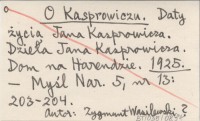 O Kasprowiczu. Daty
życia Jana Kasprowicza.
Dzieła Jana Kasprowicza.
Dom na Harendzie. 1925.
— Myśl Nar. 5, nr 13:
203-204.
autor: Zygmunt Wasilewski?